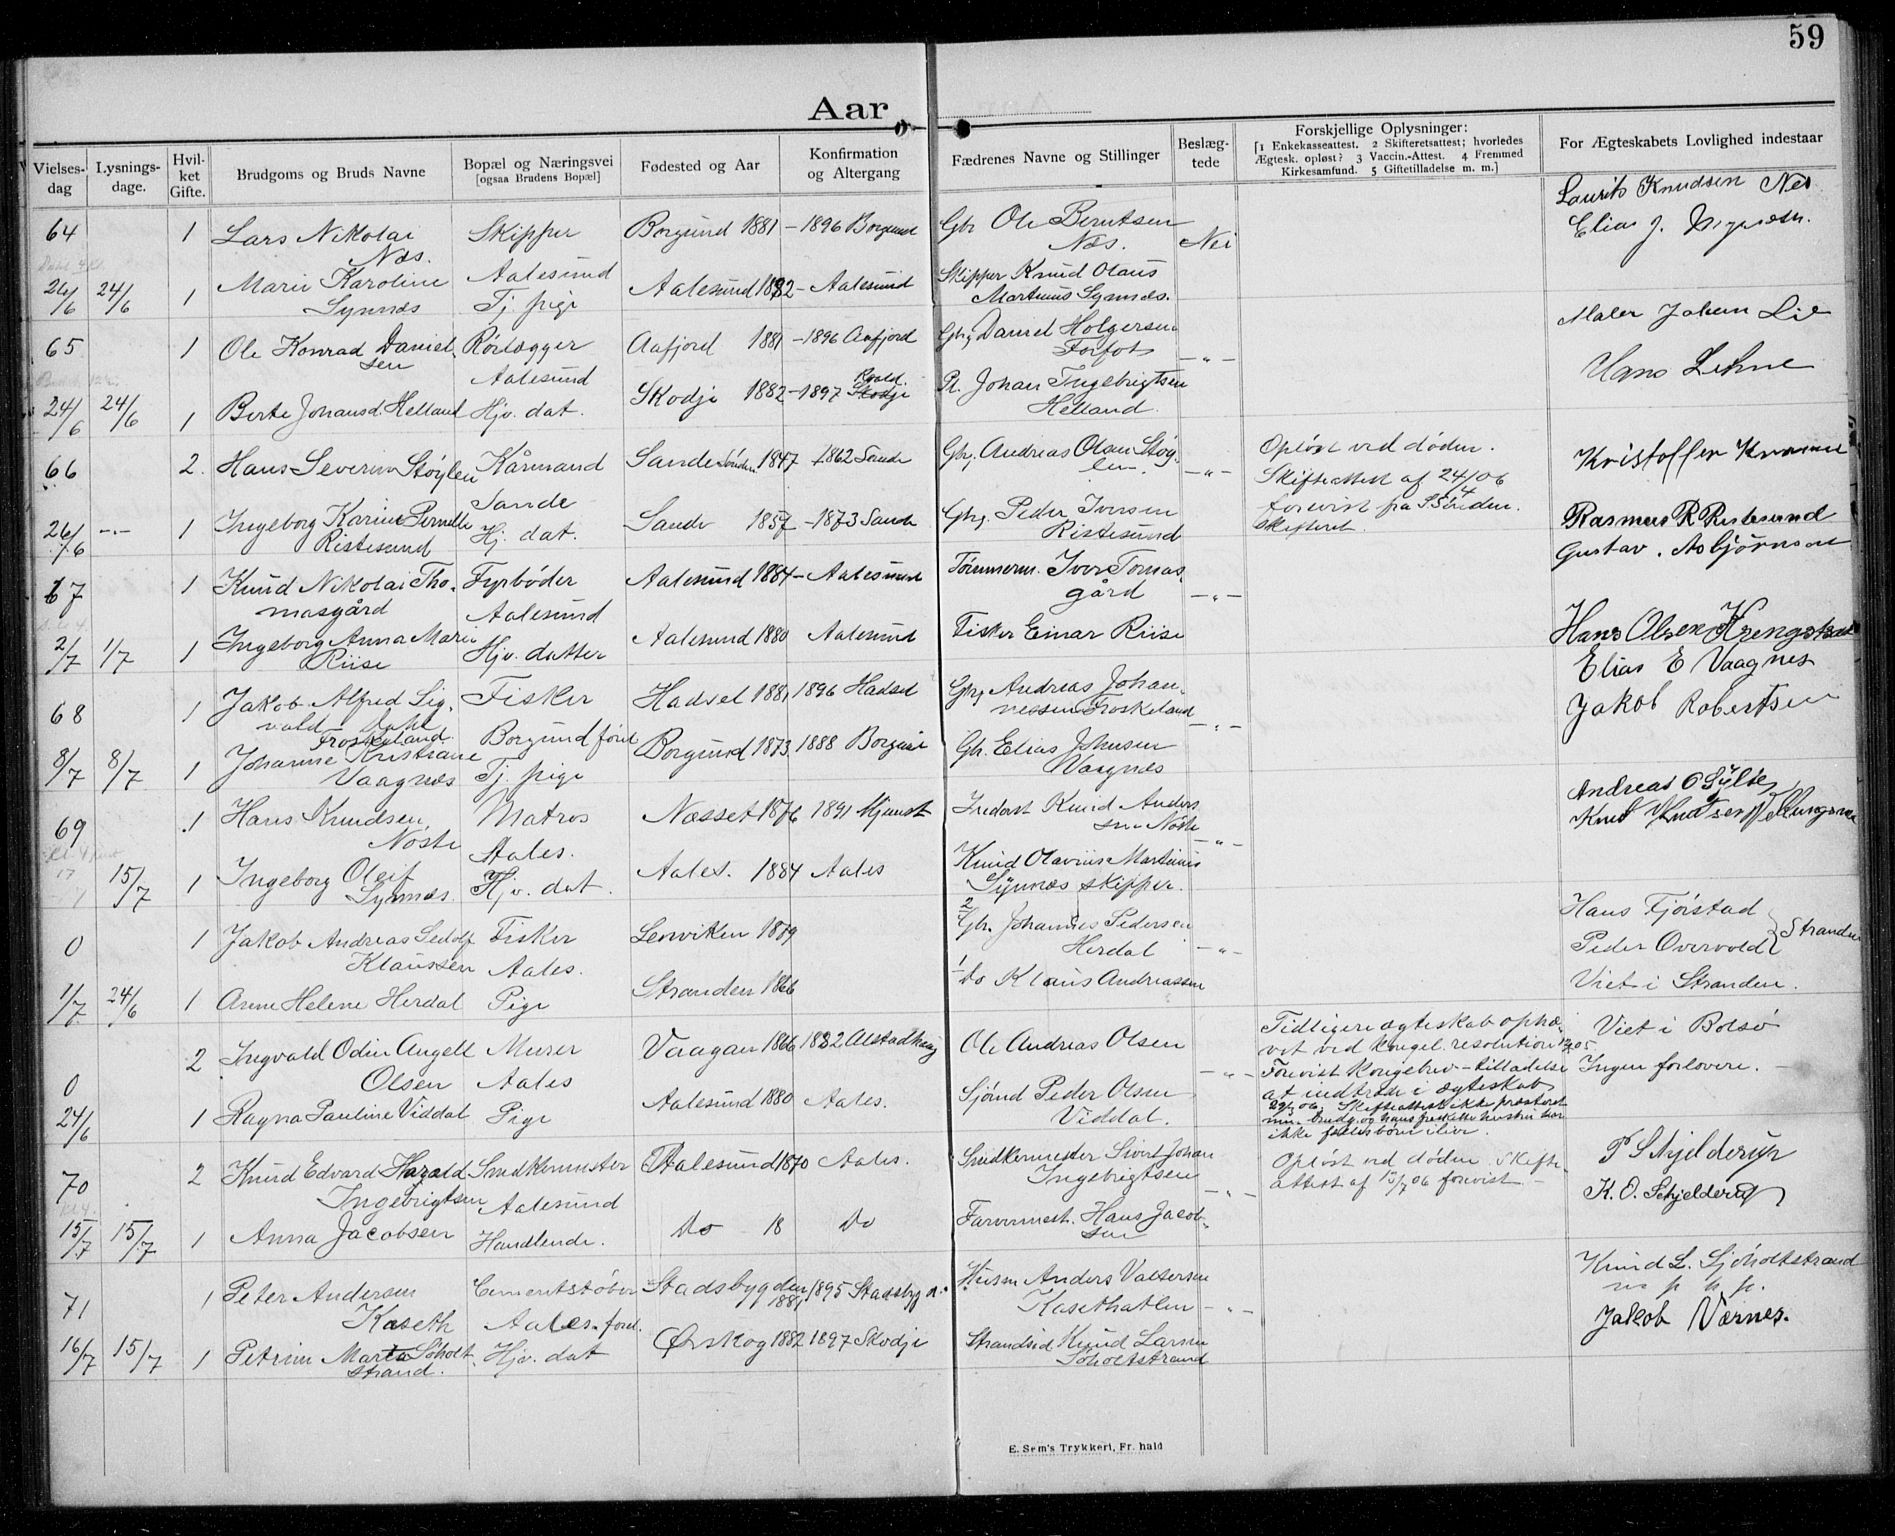 59
Aar
Vielses-dag | Lysnings-dage. | Hvil-ket Gifte. | Brudgoms og Bruds Navne | Bopæl og Næringsvei [ogsaa Brudens Bopæl] | Fødested og Aar | Konfirmation og Altergang | Fædrenes Navne og Stillinger | Beslæg-tede | Forskjellige Oplysninger: [1 Enkekasseattest. 2 Skifteretsattest; hvorledes Ægtesk. opløst? 3 Vaccin.-Attest. 4 Fremmed Kirkesamfund. 5 Giftetilladelse m. m.] | For Ægteskabets Lovlighed indestaar
64 | 1 | Lars Nikolai Næs. | Skipper Aalesund | Borgund 1881 | – 1896 Borgund | Gbr Ole Berntsen Næs. | Nei | Laurits Knudsen Nes
Elias J.
26/6 | 24/6 | 1 | Marie Karoline Synnæs | Tj. pige | Aalesund 1882 | – Aalesund | Skipper Knud Olaus Martinus Synnæs.
65 | 1 | Ole Konrad Danielsen | Rørlægger Aalesund | Aafjord 1881 | – 1896 Aafjord | Gbr, Daniel Holgersen Forfot | – „ – | Maler Johan Lie
Hans Lehne
24/6 | 24/6 | 1 | Berte Johansd. Helland | Hjv. dat. | Skodje 1882 | – 1897 Skodje | Pl. Johan Ingebrigtsen Helland.
66 | 2. | Hans Severin Støylen | Kårmand Sande | Sande Söndm. 1847 | – 1862 Sande | Gbr, Andreas Olsen Støylen. | – „ – | Opløst ved døden. Skifteattest af 24/4 06 forevist fra S Sönden. skifteret. | Kristoffer
26/6 | – – | 1 | Ingeborg Karine Pernille Ristesund | Hj. dat. | Sande 1857 | – 1873 Sande | Gbr. Peder Iversen Ristesund | Rasmus R Ristesund
Gustav. Asbjørnsen
67 | 1 | Knud Nikolai Thomasgård | Fyrbøder Aalesund | Aalesund 1884 | – Aalesund | Tømmerm. Iver Tomasgård | – „ –
2/7 | 1/7 | 1 | Ingeborg Anna Marie Riise | Hjv. datter | Aalesund 1880 | Aalesund | Fisker Einar Riise | Hans Olsen
Elias E Vaagnes
68 | 1 | Jakob Alfred Sigvald Dahl Froskeland. | Fisker Borgund förd | Hadsel 1881 | 1896 Hadsel | Gbr, Andreas Johannessen Froskeland | – „ – | Jakob Robertsen
8/7 | 8/7 | 1 | Johanne Kristiane Vaagnæs | Tj. pige | Borgund 1873. | 1888 Borgund | Gbr. Elias Johnsen Vaagnæs
69 | 1 | Hans Knudsen Nöste | Matros Aales. | Næsset 1876 | 1891 | Inderst Knud Andersen Nöste | – „ – | Andreas O Sylte
Knut Knutsen
15/7 | 1 | Ingeborg Oleif Synnæs. | Hjv. dat. | Aales. 1884 | Aales | Knud Olavius Martinus Synnæs skipper.
0 | 1 | Jakob Andreas Sedolf Klaussen | Fisker Aales. | Lenviken 1879 | 2 Gbr. Johannes Pedersen Herdal | – „ – | Hans Fjørstad
Peder Overvold } Stranden
1/7 | 24/6 | 1 | Anne Helene Herdal | Pige | Stranden 1866 | 1 do Klaus Andreassen | Viet i Stranden.
0 | 2 | Ingvald Odin Angell Olsen | Murer Aales | Vaagan 1866 | 1882 Alstadhaug | Ole Andreas Olsen | – „ – | Tidligere ægteskab ophævet ved kongel. resolution 05. Forevist kongebrev – tilladelse at indtræde i ægteskab 06. Skifteattest ikke præsteret brudg. og hans fraskilte hustru har ikke fælles børn ilive. | Viet i Bolsö
Ingen forlovere. –
24/6 | 1 | Ragna Pauline Viddal | Pige | Aalesund 1880 | Aales. | Sjömd Peder Olsen Viddal.
70 | 2 | Knud Edvard Harald Ingebrigtsen | Snedkermester Aalesund | Aalesund 1870 | Aales. | Snedkermester Sivert Johan Ingebrigtsen | – „ – | Opløst ved døden. Skifteattest af 13/7 06 forevist – | P Schjelderup
K. O. Schjelderup
15/7 | 15/7 | 1 | Anna Jacobsen | Handlende. | do 18 | do | Farvermest. Hans Jacobsen
71 | 1 | Peter Andersen Kaseth | Cementstøber Aales. ford. | Stadsbygden 1881 | 1895 Stadsbygd. | Husm Anders Valtersen Kasethatlen | – „ – | Knud L. Sjøholtstrand
m p h p.
Jakob Værnes.
16/7 | 15/7 | 1 | Petrine Marta Søholtstrand. | Hjv. dat | Ørskog 1882 | 1897 Skodje | Strandsid Knud Larsen Søholtstrand
E. Sem's Trykkeri, Fr. hald